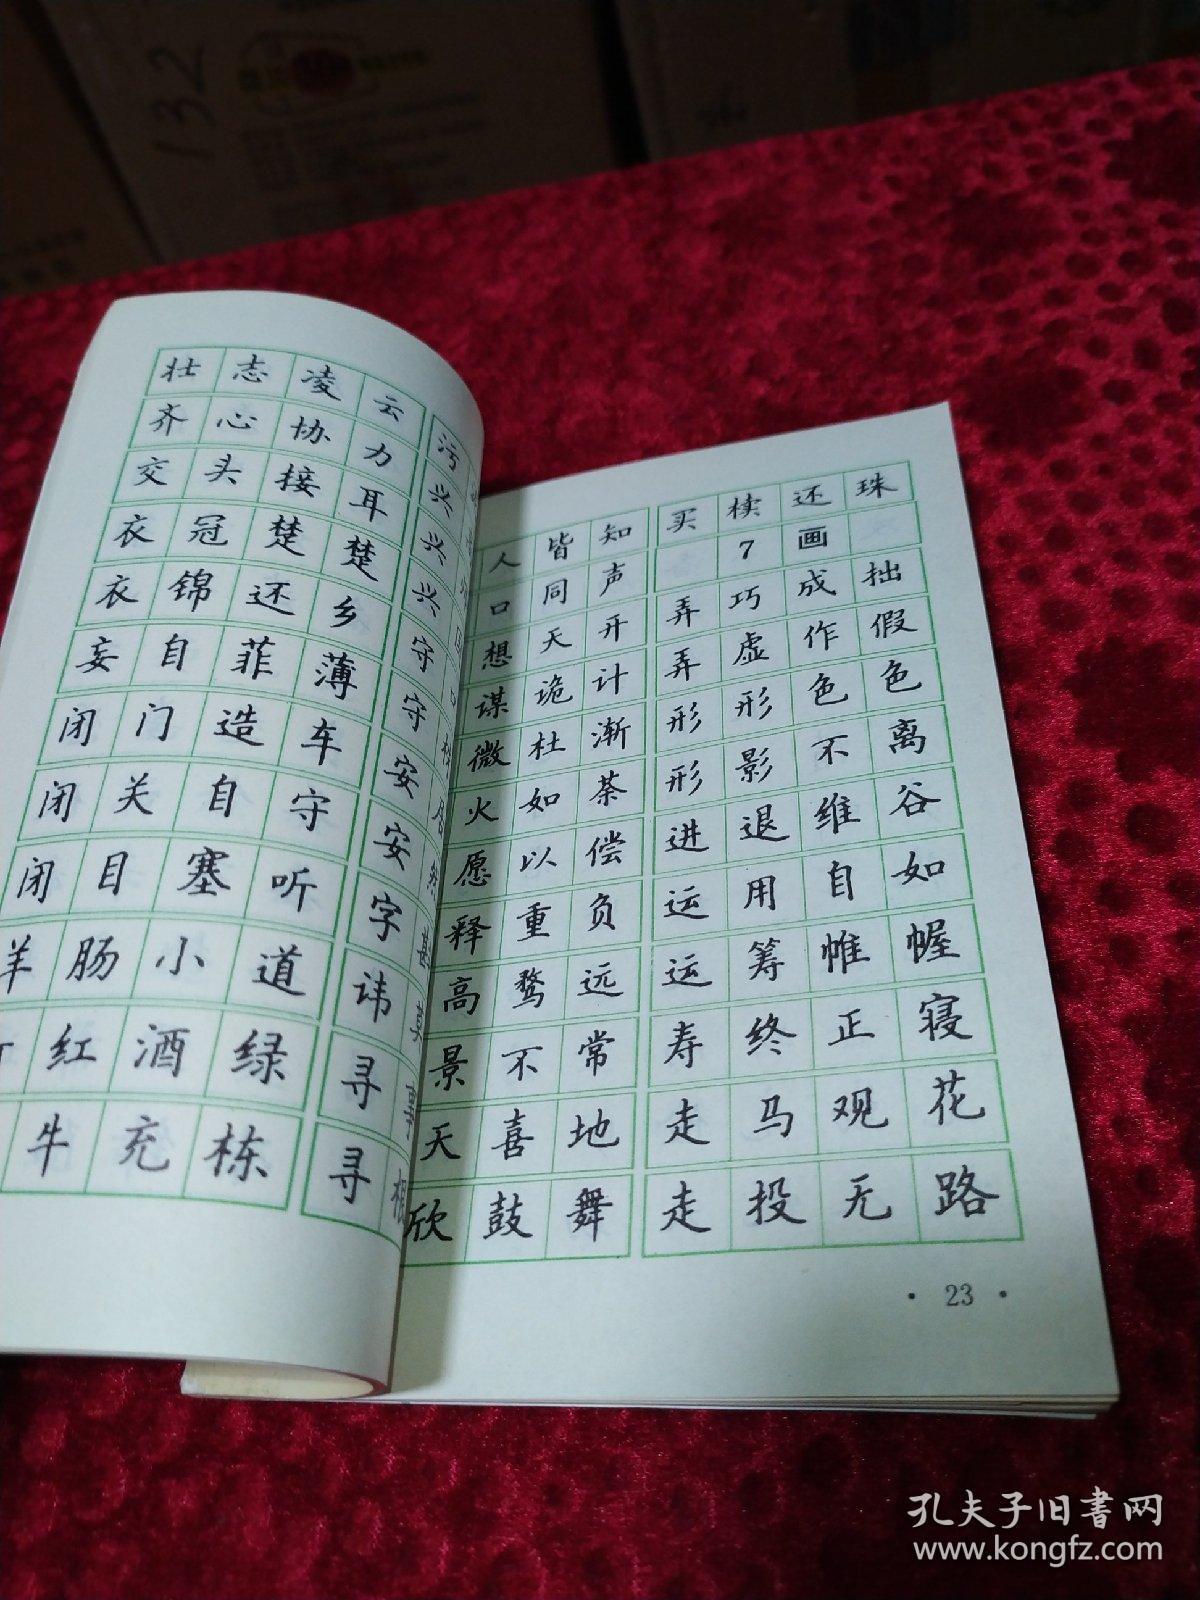 132
壮志凌云
齐心协力
交头接耳
衣冠楚楚
衣锦还乡
妄自菲薄
闭门造车
闭关自守
闭目塞听
羊肠小道
红酒绿
牛充栋
污
兴
兴
兴
守
守
安
安
字
讳
寻
寻
人皆知
口同声
想天开
谋诡计
微杜渐
火如荼
愿以偿
释重负
高骛远
景不常
天喜地
欣鼓舞
买椟还珠
7画
弄巧成拙
弄虚作假
形形色色
形影不离
进退维谷
运用自如
运筹帷幄
寿终正寝
走马观花
走投无路
·23·
孔夫子旧书网
www.kongfz.com